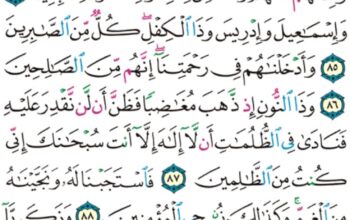 وَإِسْمَٰعِيلَ وَإِدْرِيسَ وَذَا ٱلْكِفْلِ ۖ كُلٌّ مِّنَ ٱلصَّٰبِرِينَ
٨٥ وَأَدْخَلْنَٰهُمْ فِى رَحْمَتِنَآ ۖ إِنَّهُم مِّنَ ٱلصَّٰلِحِينَ
٨٦ وَذَا ٱلنُّونِ إِذ ذَّهَبَ مُغَٰضِبًا فَظَنَّ أَن لَّن نَّقْدِرَ عَلَيْهِ
فَنَادَىٰ فِى ٱلظُّلُمَٰتِ أَن لَّآ إِلَٰهَ إِلَّآ أَنتَ سُبْحَٰنَكَ إِنِّى
كُنتُ مِنَ ٱلظَّٰلِمِينَ ٨٧ فَٱسْتَجَبْنَا لَهُۥ وَنَجَّيْنَٰهُ
وَكَذَٰلِكَ نُـۨجِى ٱلْمُؤْمِنِينَ ٨٨ وَزَكَرِيَّآ